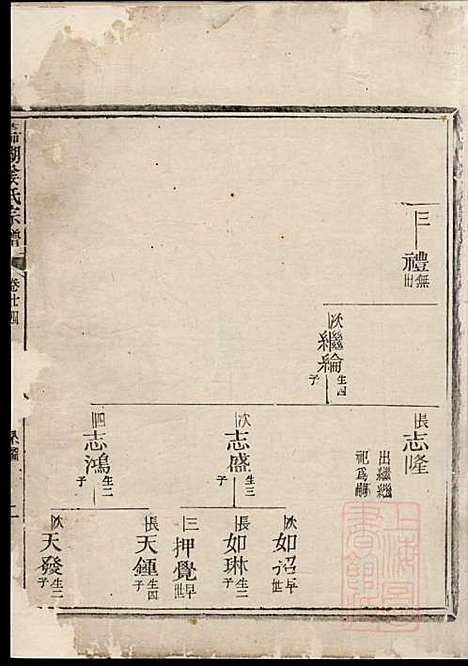 三
禮
無
出
次
繼綸
生四
子
長
志隆
出繼繼
祀為嗣
次
志盛
生三
子
四
志鴻
生二
子
次
如詔
早
世
長
如琳
生二
子
三
押覺
早
世
長
天鍾
生四
子
次
天發
生二
子
湖姜氏宗譜
卷廿四